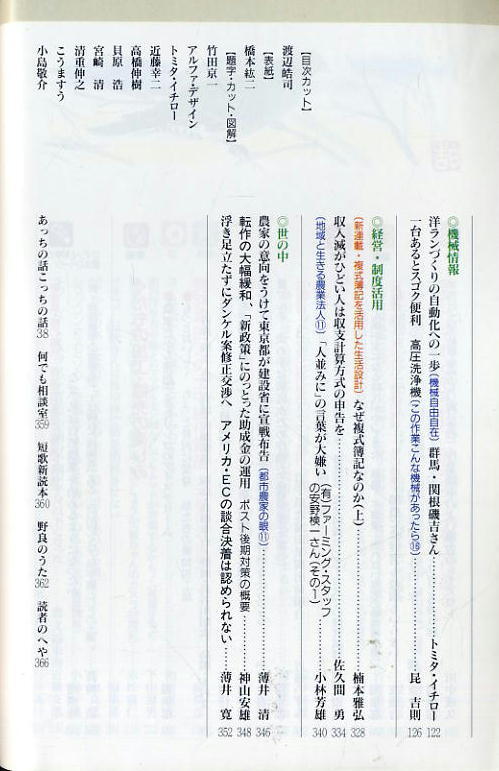 ◎機械情報
洋ランづくりの自動化への一歩(機械自由自在) 群馬・関根磯吉さん トミタ・イチロー 122
一台あるとスゴク便利 高圧洗浄機(この作業こんな機械があったら⑯) 昆 吉則 126
◎経営・制度活用
(新連載・複式簿記を活用した生活設計) なぜ複式簿記なのか(上) 楠本雅弘 328
収入減がひどい人は収支計算方式の申告を 佐久間 勇 334
(地域と生きる農業法人⑪) 「人並みに」の言葉が大嫌い (有)ファーミング・スタッフの安野検一さん(その一) 小林芳雄 340
◎世の中
農家の意向をうけて東京都が建設省に宣戦布告(都市農家の眼⑪) 薄井 清 346
転作の大幅緩和、「新政策」にのっとった助成金の運用 ポスト後期対策の概要 神山安雄 348
浮き足立たずにダンケル案修正交渉へ アメリカ・ECの談合決着は認められない 薄井 寛 352
あっちの話こっちの話38 何でも相談室359 短歌新読本360 野良のうた362 読者のへや366
【目次カット】
渡辺皓司
【表紙】
橋本紘二
【題字・カット・図解】
竹田京一
アルファ・デザイン
トミタ・イチロー
近藤幸二
高橋伸樹
貝原 浩
宮崎 清
清重伸之
こうますう
小島敬介